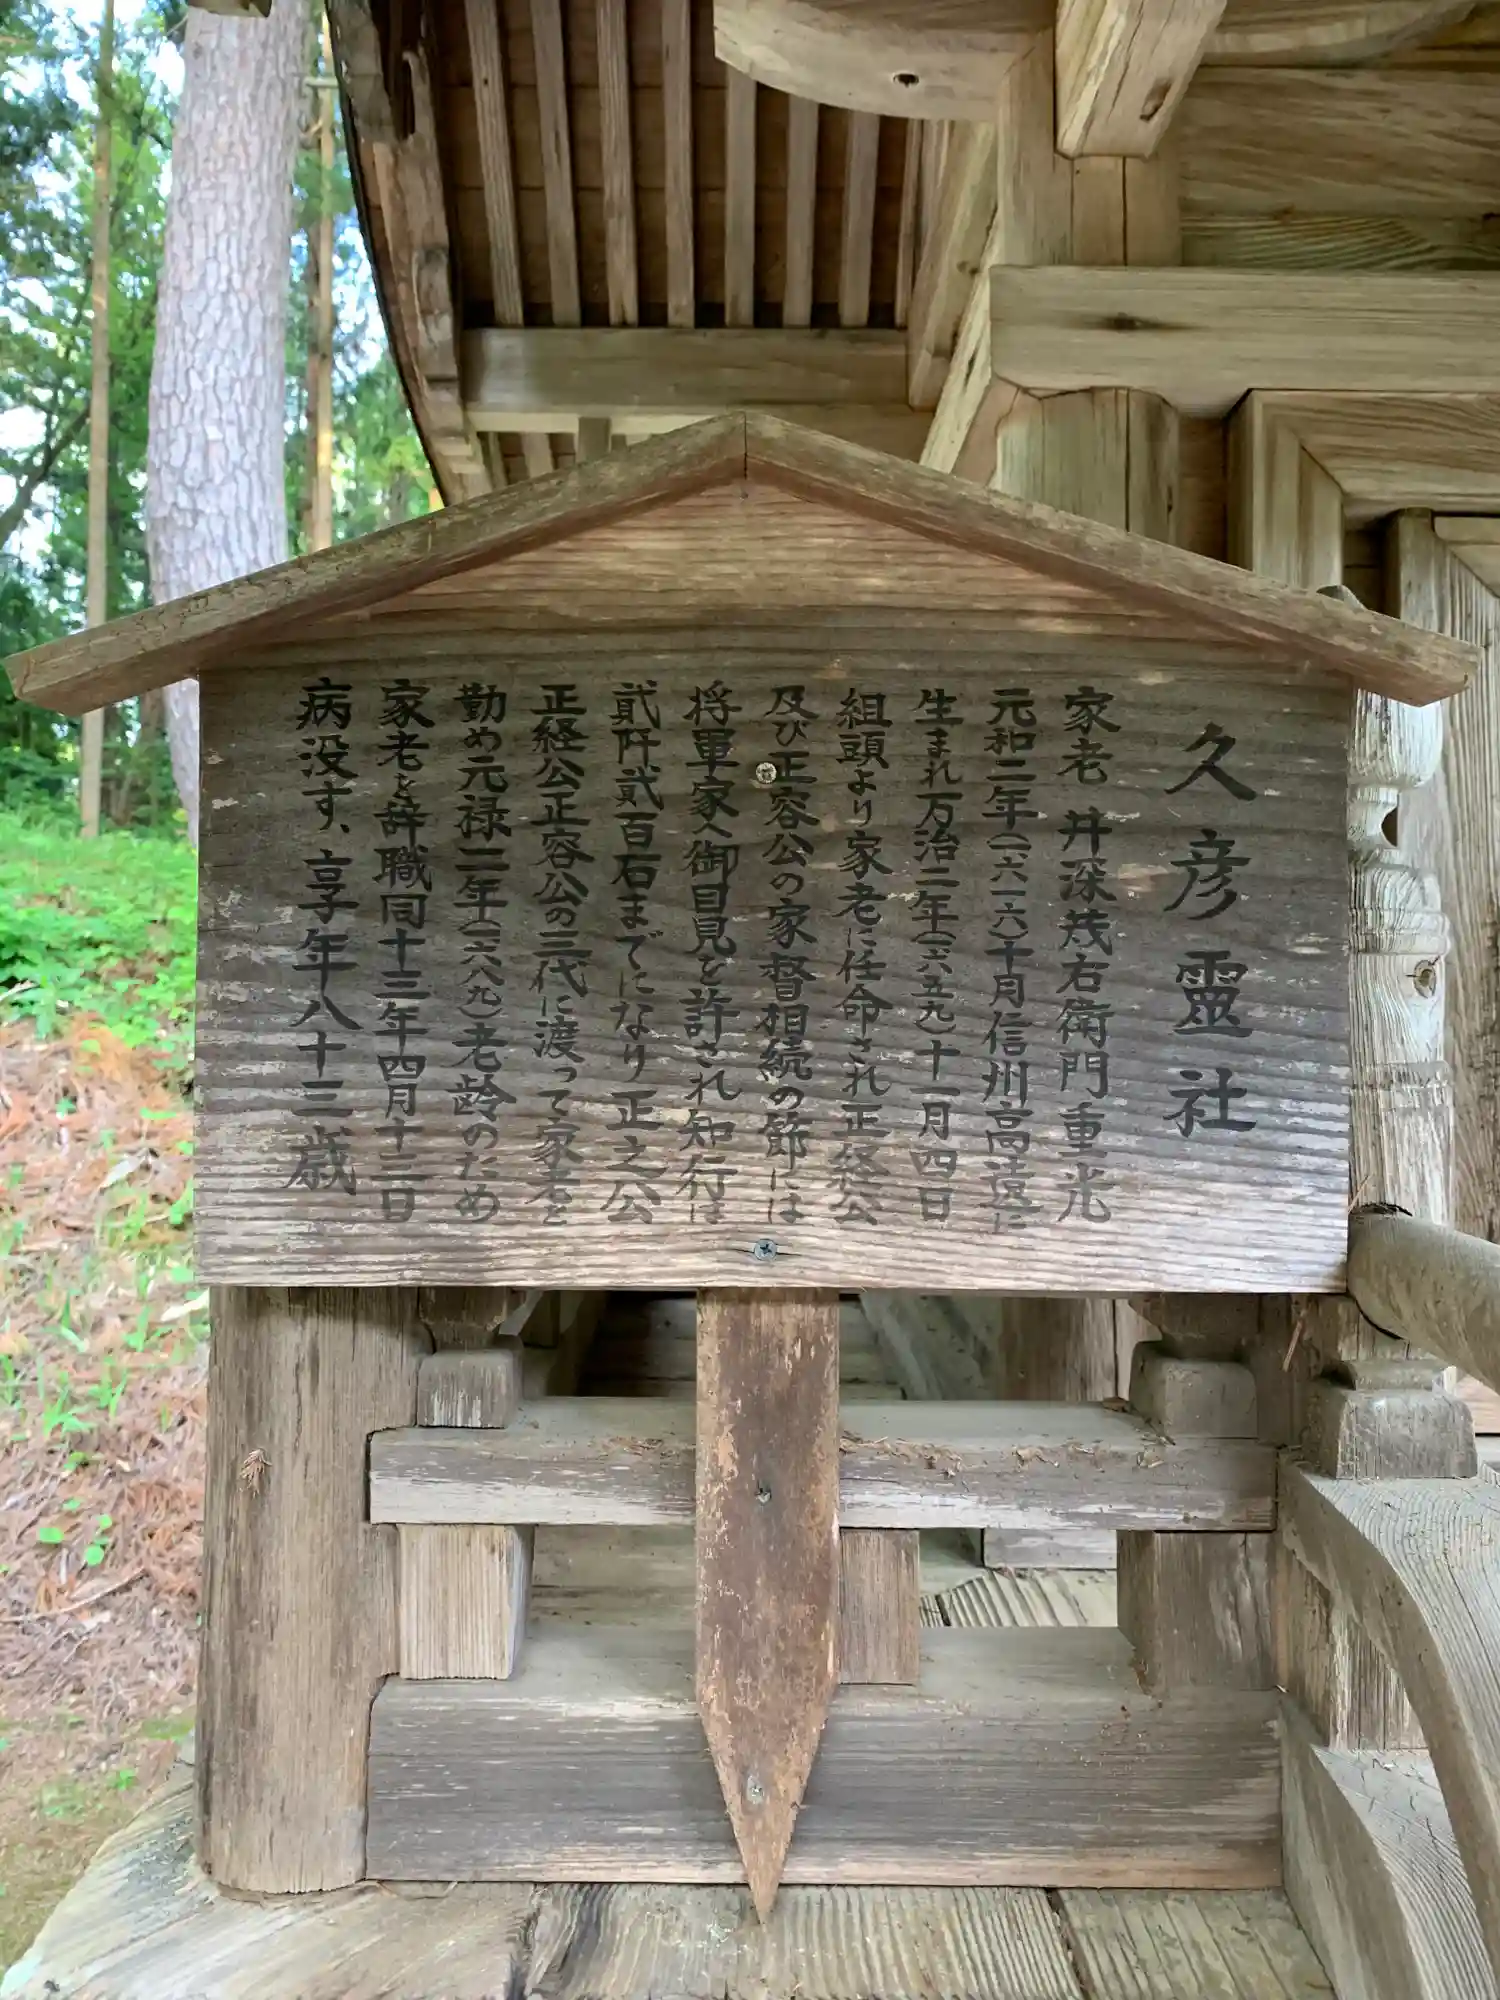 久彦靈社
家老 井深茂右衛門重光
元和二年(一六一六)十月信州高遠に
生まれ万治二年(一六五九)十一月四日
組頭より家老に任命され正経公
及び正容公の家督相続の節には
将軍家へ御目見を許され知行は
貮阡貮百石までになり正之公
正経公正容公の三代に渡って家老を
勤め元禄二年(一六八九)老齢のため
家老を辞職同十三年四月十三日
病没す、享年八十三歳